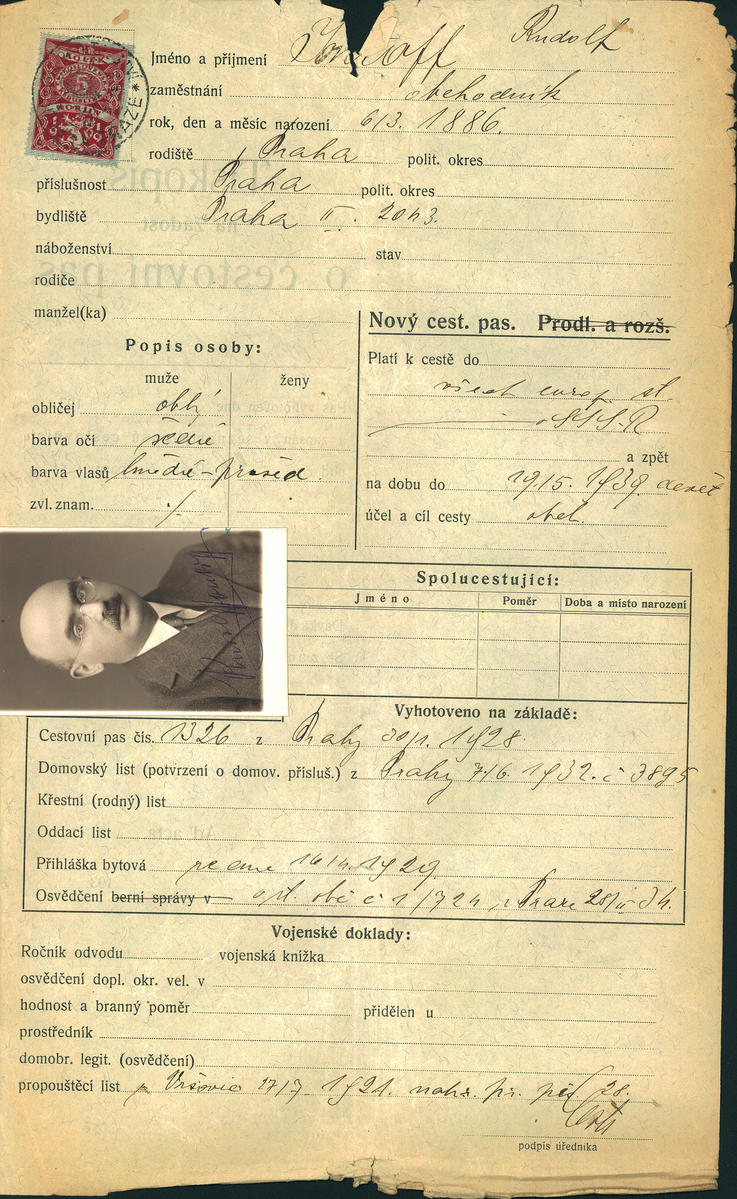 Jméno a příjmení Rudolf
zaměstnání obchodník
rok, den a měsíc narození 6/3. 1886.
rodiště Praha polit. okres
příslušnost Praha polit. okres
bydliště Praha II. 2043.
náboženství stav
rodiče
manžel(ka)
Popis osoby:
muže ženy
obličej oblý
barva očí šedé
barva vlasů hnědé-prošed.
zvl. znam. ./.
Nový cest. pas. Prodl. a rozš.
Platí k cestě do
všech evrop. st.
SSSR
a zpět
na dobu do 19/5. 1939.
účel a cíl cesty obch.
Spolucestující:
Jméno Poměr Doba a místo narození
Vyhotoveno na základě:
Cestovní pas čís. 1326 z Prahy 1928.
Domovský list (potvrzení o domov. přísluš.) z Prahy 7/6. 1932. č 3895
Křestní (rodný) list
Oddací list
Přihláška bytová ze dne 1929.
Osvědčení berní správy v
Vojenské doklady:
Ročník odvodu vojenská knížka
osvědčení dopl. okr. vel. v
hodnost a branný poměr přidělen u
prostředník
domobr. legit. (osvědčení)
propouštěcí list Vršovic 17/7 1921. 28.
podpis úředníka